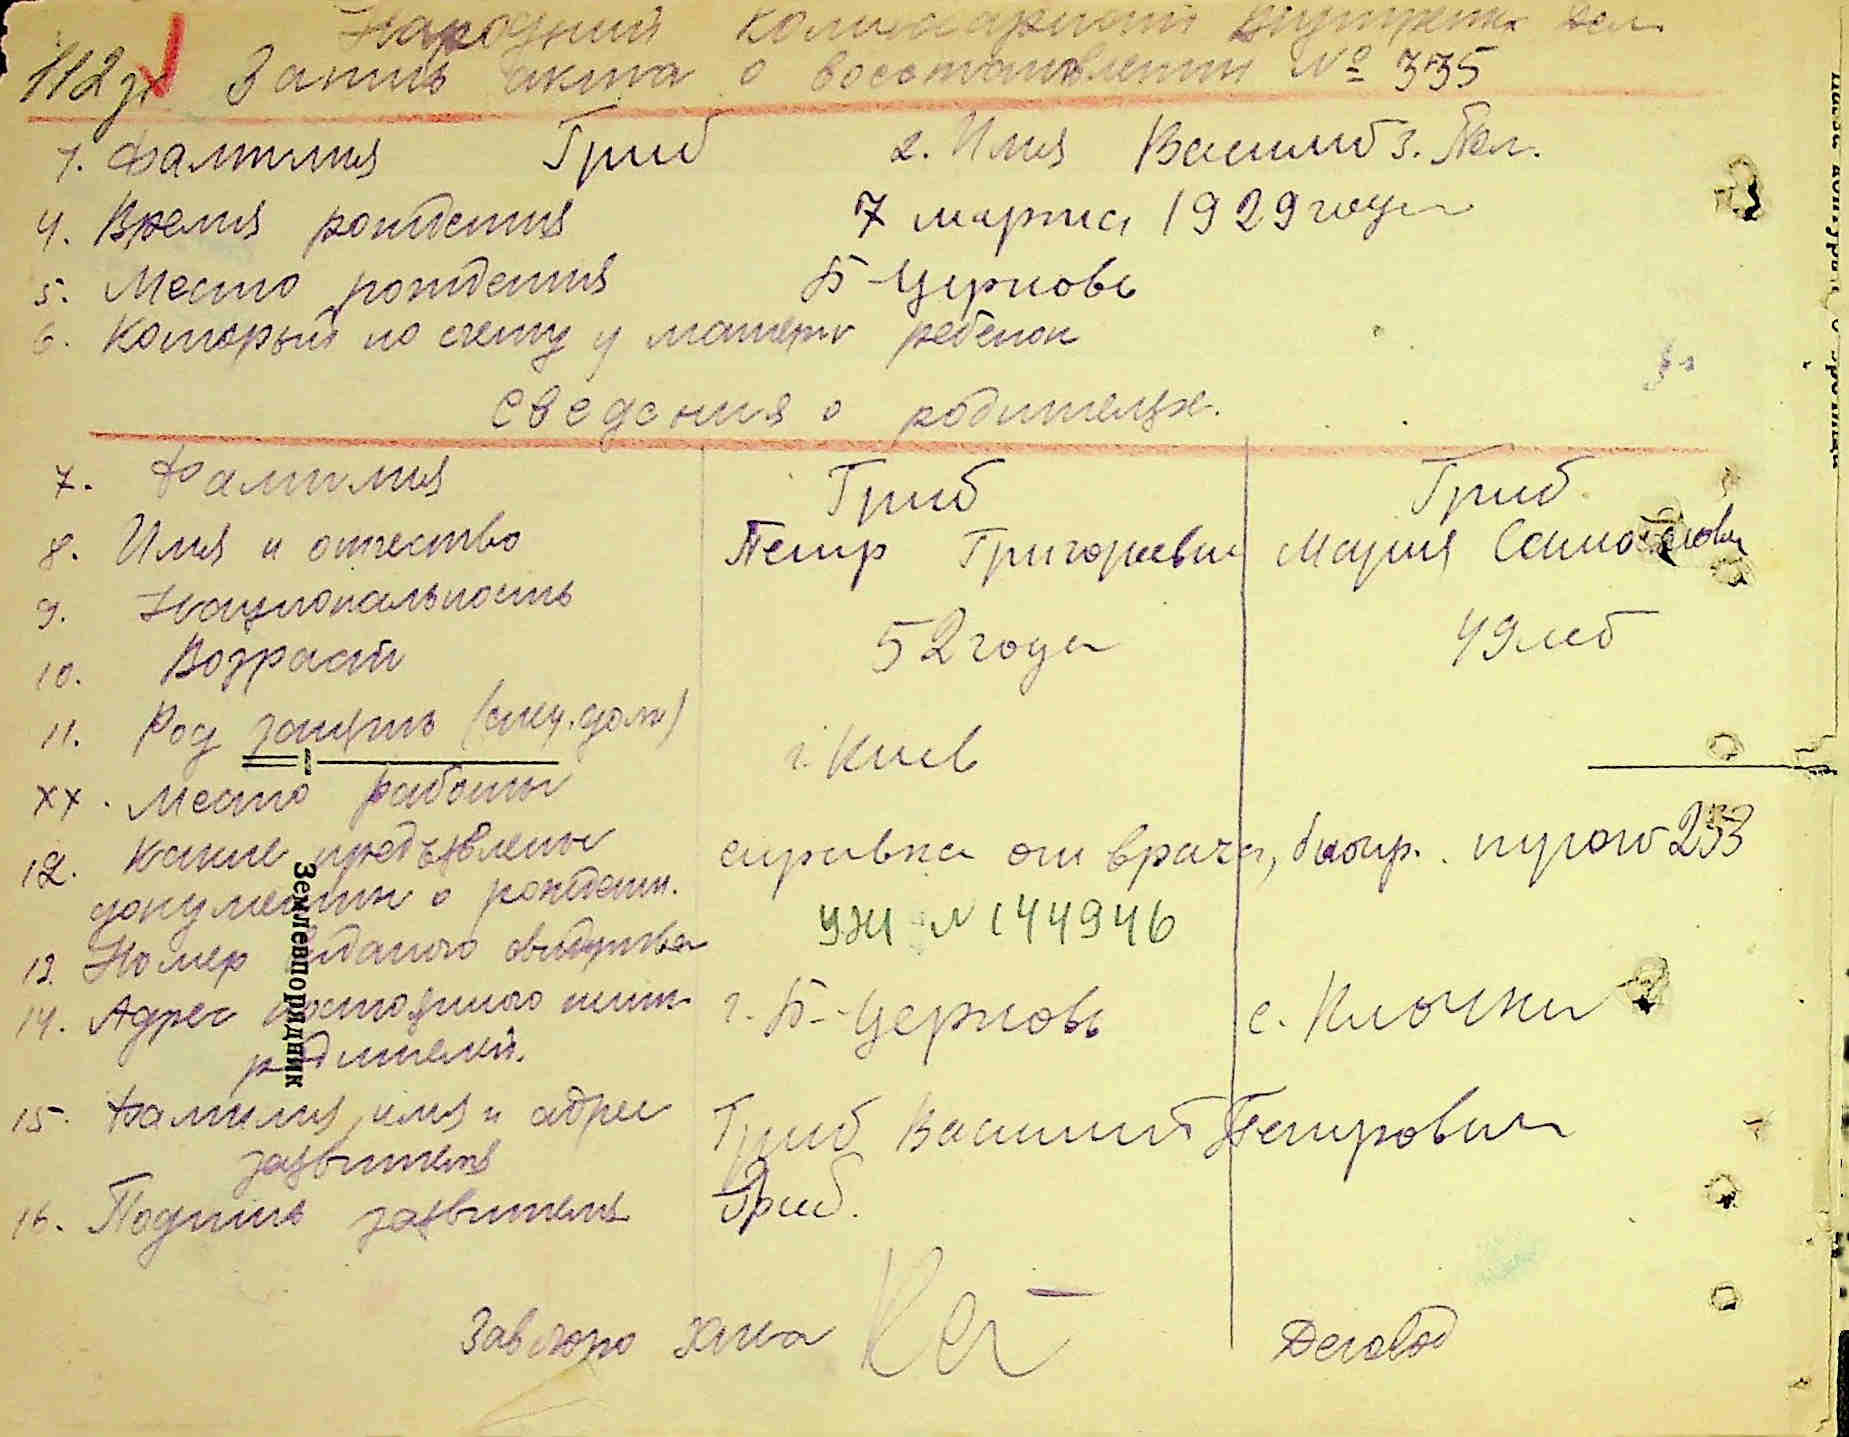 Народний Комиссариат Внутренн. Дел
Запись акта о восстановлении № 335
1. Фамилия Гриб 2. Имя Василий 3. Пол.
4. Время рождения 7 марта 1929 года
5. Место рождения Б-Церковь
6. Который по счету у матери ребенок
Сведения о родителях.
7. Фамилия Гриб Гриб
8. Имя и отчество Петр Григорьевич Мария
9. Национальность
10. Возраст 52 года 49 лет
11. Род занять (спец. долж)
г. Киев
хх. Место работы
12. Какие предъявлены справка от врача, 253
документы о рождени.
13. Номер выданого свидетельства УЖ № 144946
14. Адрес постоянного жит- г. Б-Церковь с. Клочки
родителей.
15. Фамилия, имя и адрес Гриб Василий Петрович
заявителя
16. Подпись заявителя Гриб.
Зав бюро ЗАГСа
Землевпорядник